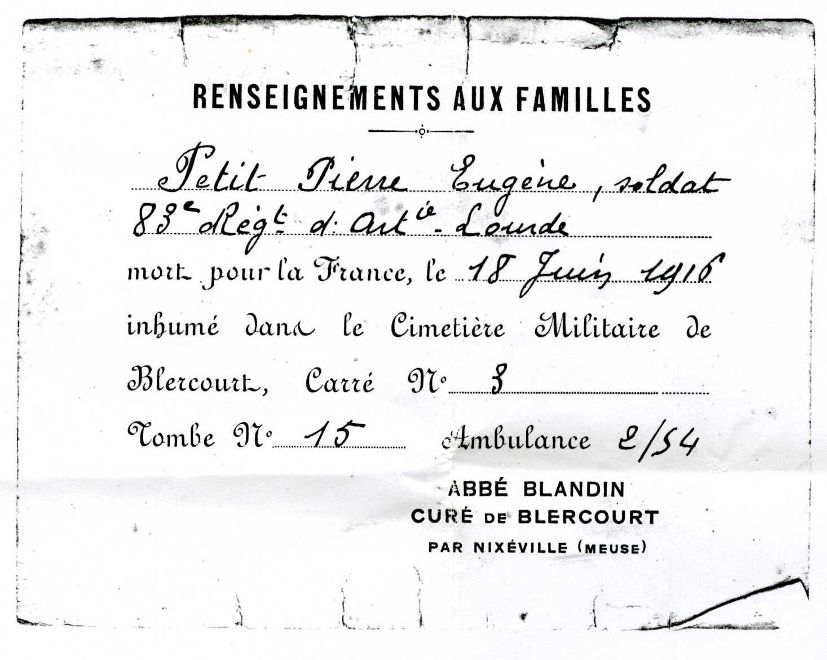 RENSEIGNEMENTS AUX FAMILLES
Petit Pierre Eugène, soldat
83e Régt d'Artie Lourde
mort pour la France, le 18 Juin 1916
inhumé dans le Cimetière Militaire de
Blercourt, Carré No 3
Tombe No 15 Ambulance 2/54
ABBÉ BLANDIN
CURÉ DE BLERCOURT
PAR NIXÉVILLE (MEUSE)